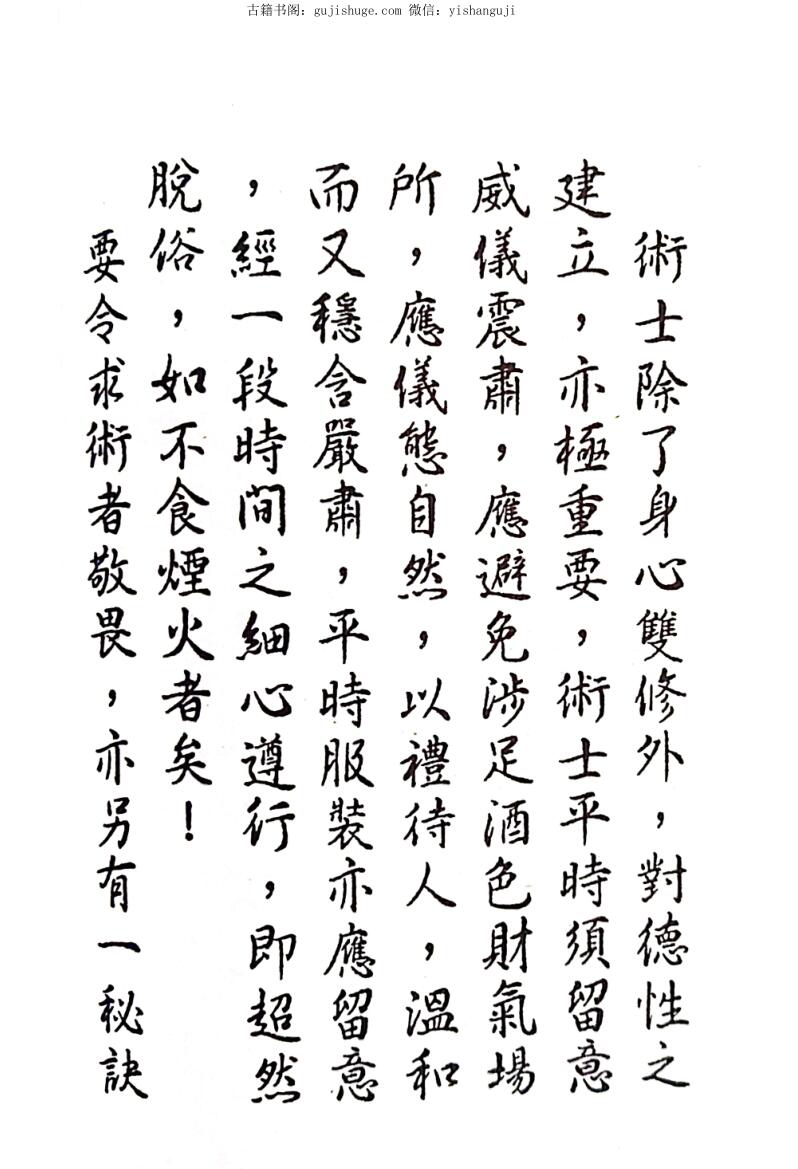 古籍书阁：gujishuge.com 微信：yishanguji
術士除了身心雙修外，對德性之
建立，亦極重要，術士平時須留意
威儀震肅，應避免涉足酒色財氣場
所，應儀態自然，以禮待人，溫和
而又穩含嚴肅，平時服裝亦應留意
，經一段時間之細心遵行，即超然
脫俗，如不食煙火者矣！
要令求術者敬畏，亦另有一秘訣